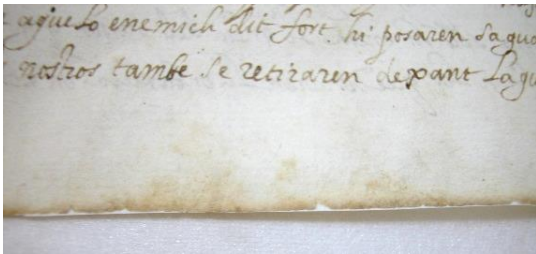 aguelo enemich dit fort, hi posaren
nostros tambe se retiraren dexant